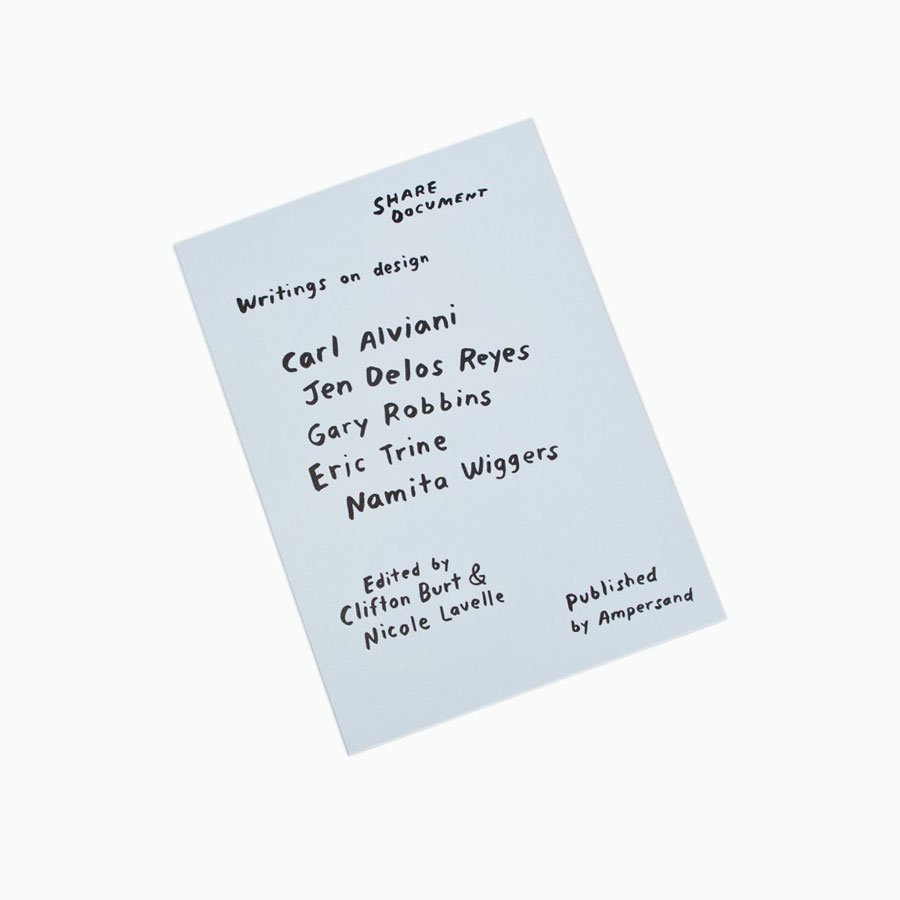 SHARE
DOCUMENT
Writings on design
Carl Alviani
Jen Delos Reyes
Gary Robbins
Eric Trine
Namita Wiggers
Edited by
Clifton Burt &
Nicole Lavelle
Published
by Ampersand